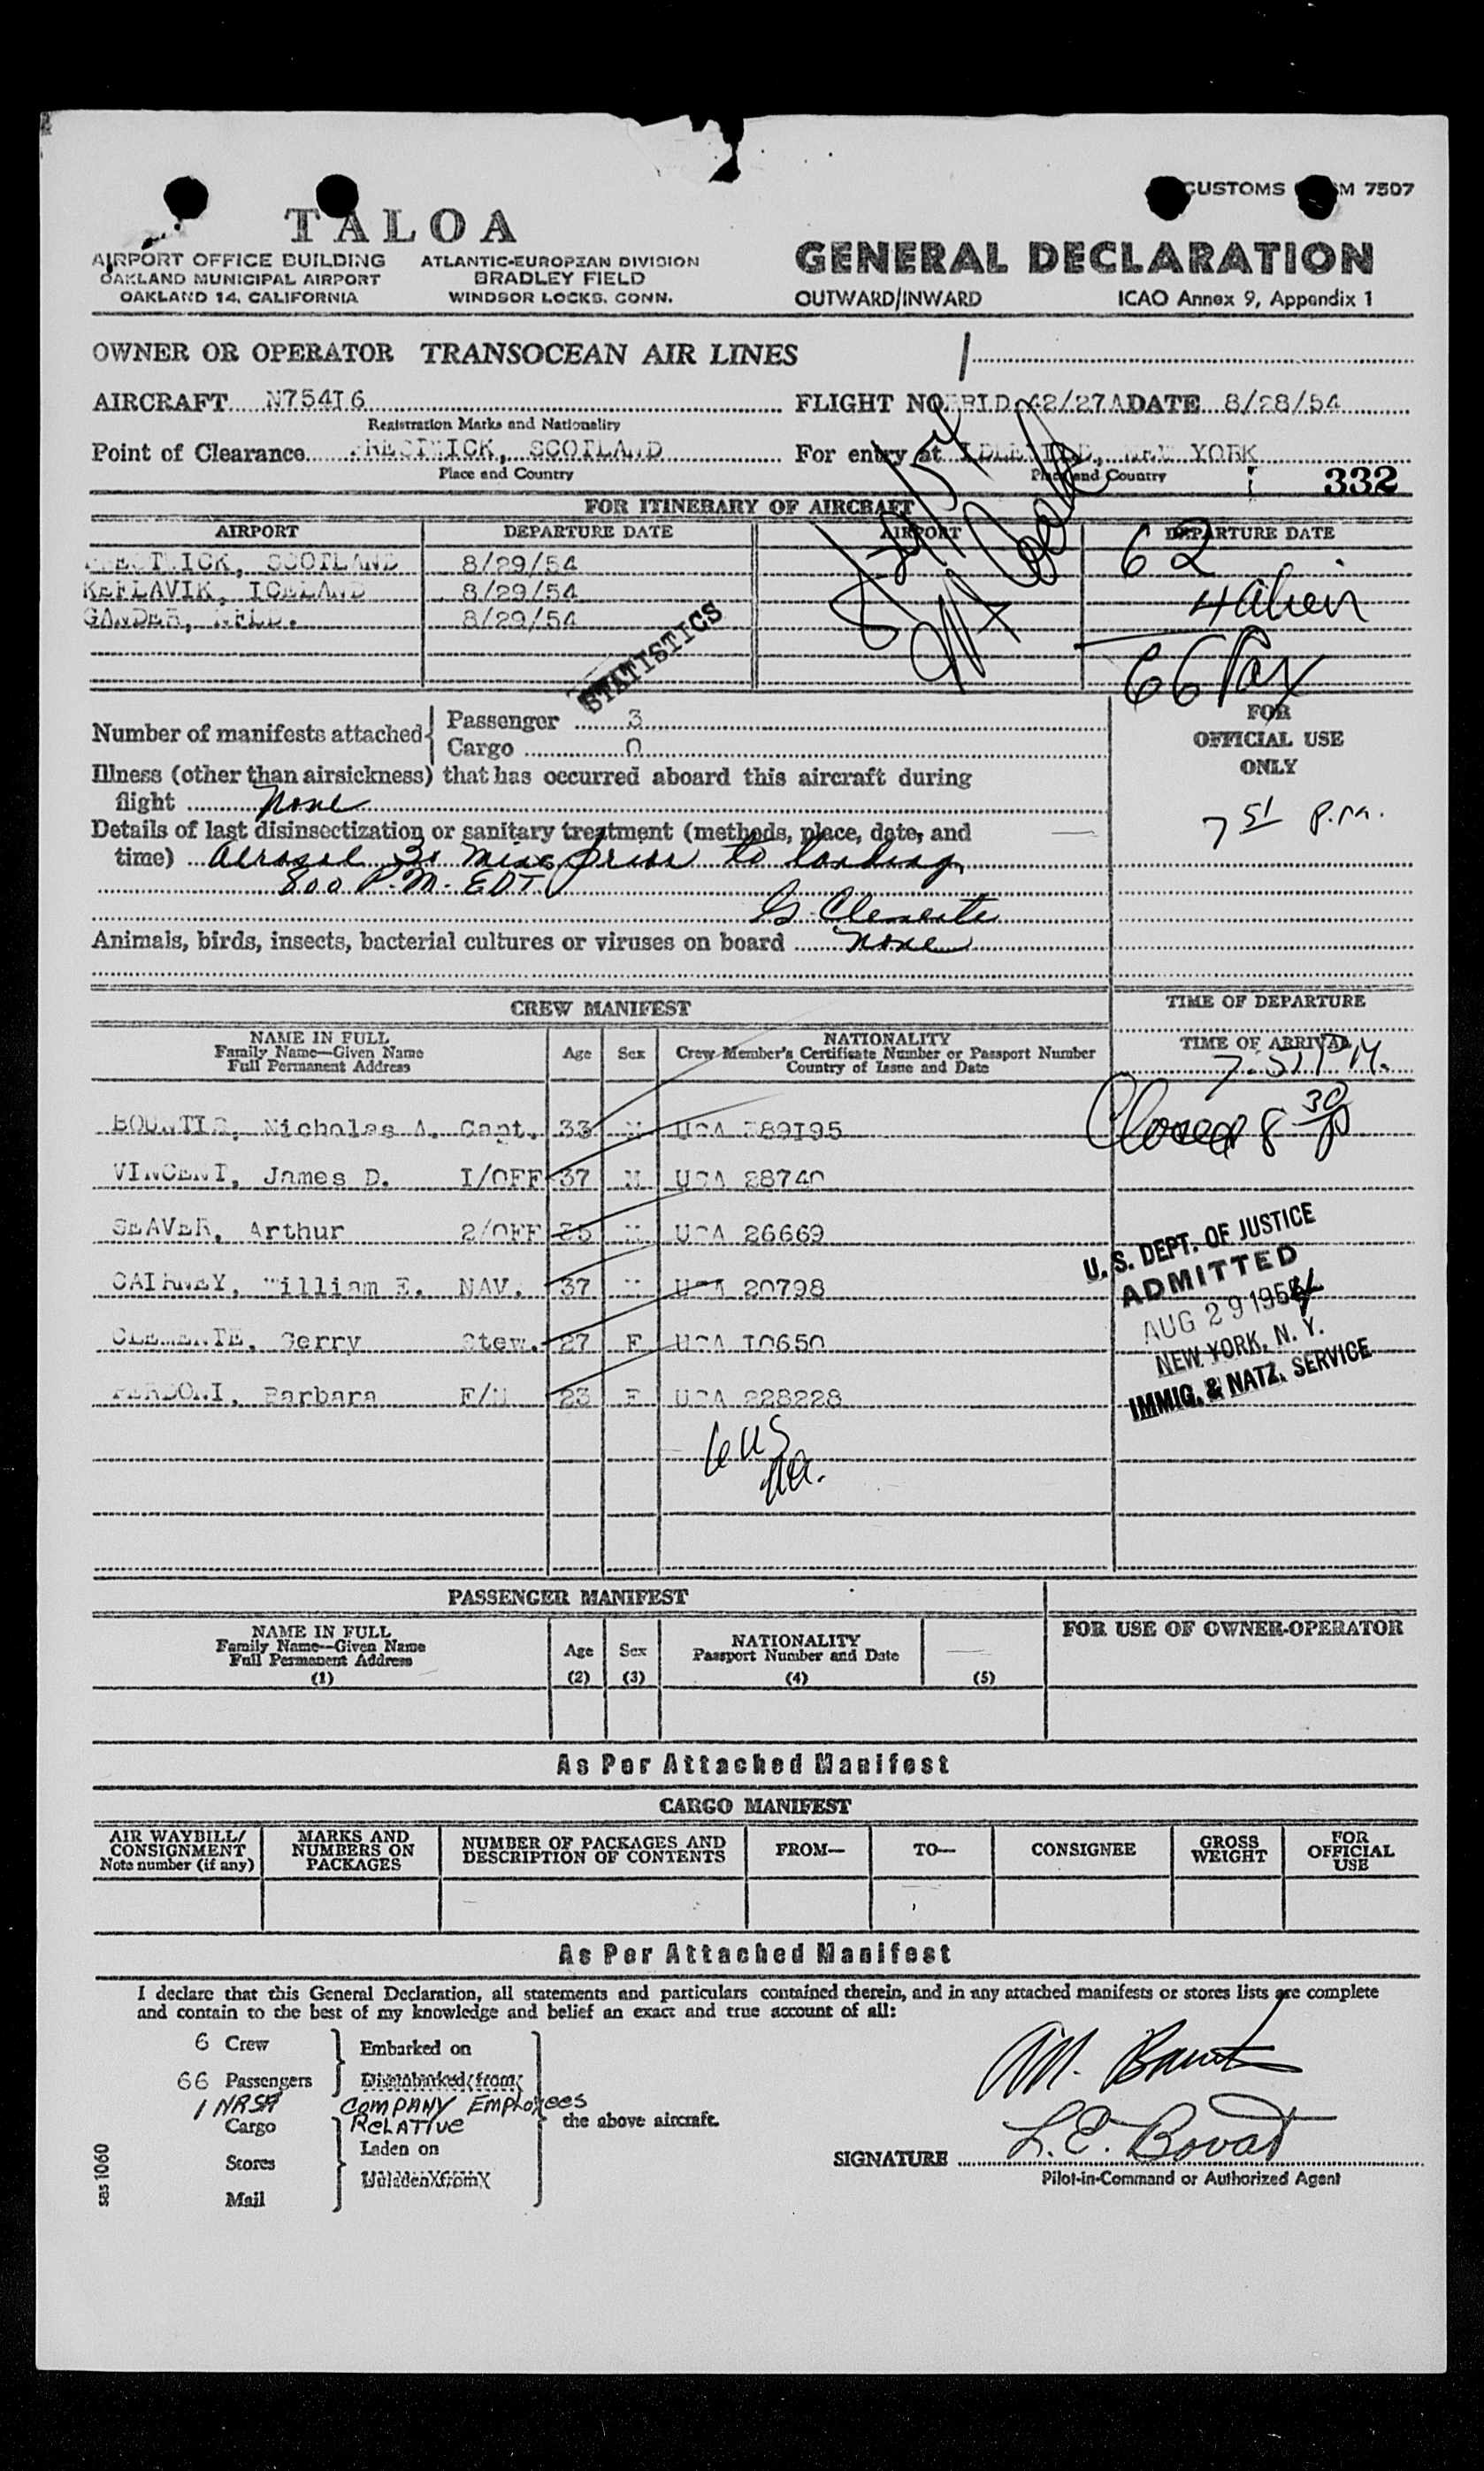 CUSTOMS M 7507
TALOA
AIRPORT OFFICE BUILDING
OAKLAND MUNICIPAL AIRPORT
OAKLAND 14, CALIFORNIA
ATLANTIC-EUROPEAN DIVISION
BRADLEY FIELD
WINDSOR LOCKS, CONN.
GENERAL DECLARATION
OUTWARD/INWARD ICAO Annex 9, Appendix 1
OWNER OR OPERATOR TRANSOCEAN AIR LINES
AIRCRAFT N75416 FLIGHT NO. 42/27A DATE 8/28/54
Registration Marks and Nationality
Point of Clearance PRESTWICK, SCOTLAND For entry at IDLEWILD, NEW YORK
Place and Country Place and Country
332
FOR ITINERARY OF AIRCRAFT
AIRPORT DEPARTURE DATE AIRPORT DEPARTURE DATE
PRESTWICK, SCOTLAND 8/29/54
KEFLAVIK, ICELAND 8/29/54
GANDER, NFLD. 8/29/54
62
4 Alien
66 Pax
STATISTICS
Number of manifests attached
Passenger 3
Cargo 0
FOR
OFFICIAL USE
ONLY
Illness (other than airsickness) that has occurred aboard this aircraft during
flight None
7 51 P.M.
Details of last disinsectization or sanitary treatment (methods, place, date, and
time) Aerosol 30 mins prior to landing
800 P.M. EDT
G. Clemente
Animals, birds, insects, bacterial cultures or viruses on board None
CREW MANIFEST
TIME OF DEPARTURE
NAME IN FULL
Family Name—Given Name
Full Permanent Address
Age
Sex
NATIONALITY
Crew Member's Certificate Number or Passport Number
Country of Issue and Date
TIME OF ARRIVAL
7:51 P.M.
Closed 8 30 p
Nicholas A. Capt. 33 M USA 389195
VINCENT, James D. 1/OFF 37 M USA 28740
SEAVER, Arthur 2/OFF 35 M USA 26669
CAIRNEY, William E. NAV. 37 M USA 20798
CLEMENTE, Gerry Stew. 27 F USA 10650
PERDONI, Barbara 23 F USA 228228
6 US
U.S. DEPT. OF JUSTICE
ADMITTED
AUG 29 1954
NEW YORK, N.Y.
IMMIG. & NATZ. SERVICE
PASSENGER MANIFEST
NAME IN FULL
Family Name—Given Name
Full Permanent Address
(1)
Age
(2)
Sex
(3)
NATIONALITY
Passport Number and Date
(4)
(5)
FOR USE OF OWNER-OPERATOR
As Per Attached Manifest
CARGO MANIFEST
AIR WAYBILL/
CONSIGNMENT
Note number (if any)
MARKS AND
NUMBERS ON
PACKAGES
NUMBER OF PACKAGES AND
DESCRIPTION OF CONTENTS
FROM—
TO—
CONSIGNEE
GROSS
WEIGHT
FOR
OFFICIAL
USE
As Per Attached Manifest
I declare that this General Declaration, all statements and particulars contained therein, and in any attached manifests or stores lists are complete
and contain to the best of my knowledge and belief an exact and true account of all:
6 Crew Embarked on
66 Passengers Disembarked from
1 NRSA COMPANY Employees
Cargo RELATIVE the above aircraft.
Laden on
Stores
Unladen from
Mail
SIGNATURE L. E. Bovat
Pilot-in-Command or Authorized Agent
sas 1060